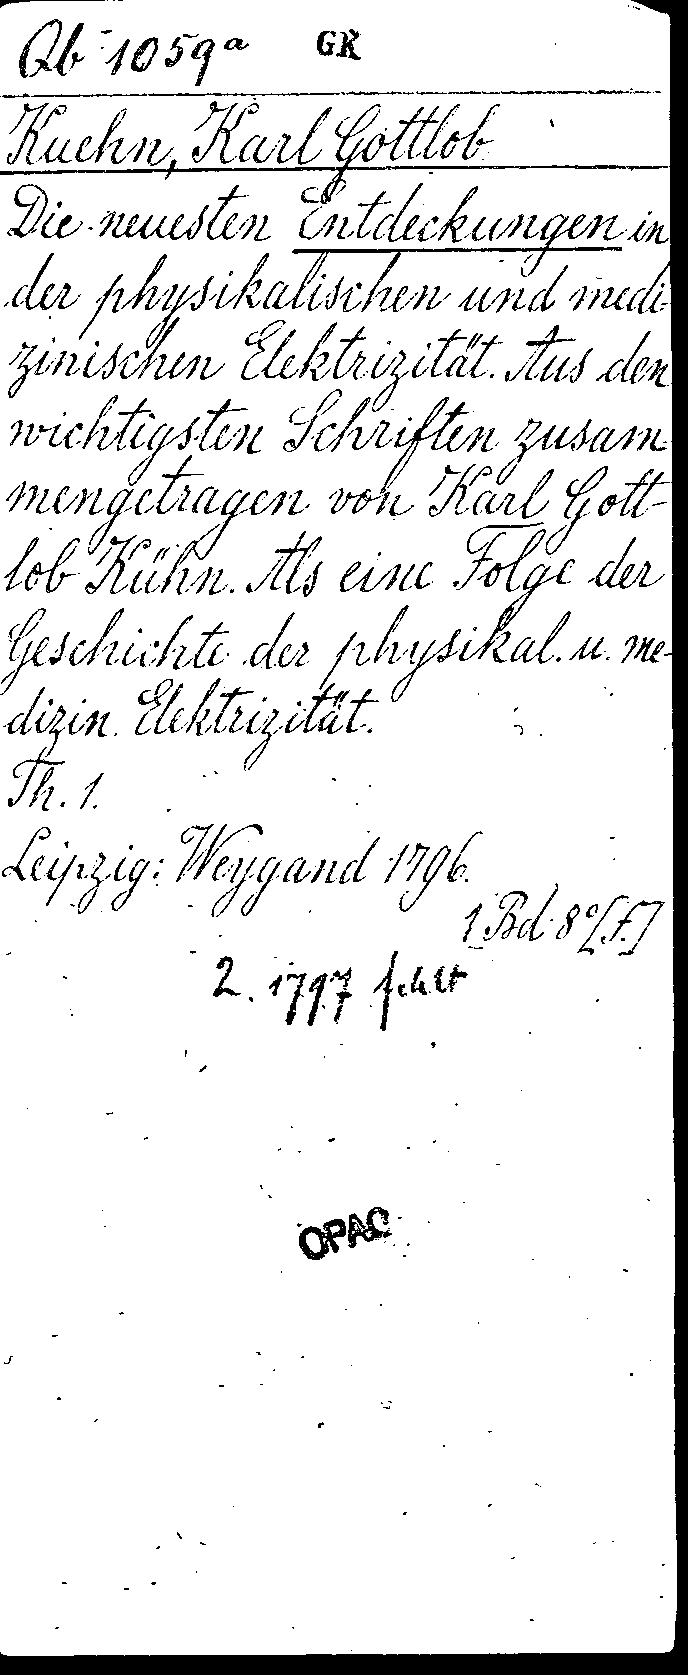 Qb 1059a GK
Kuehn, Karl Gottlob
Die neuesten Entdeckungen in
der physikalischen und medi-
zinischen Elektrizität. Aus den
wichtigsten Schriften zusam-
mengetragen von Karl Gott-
lob Kühn. Als eine Folge der
Geschichte der physikal. u. me-
dizin. Elektrizität.
Th. 1.
Leipzig: Weygand 1796.
1 Bd. 8° [f.]
2. 1797 fehlt
OPAC